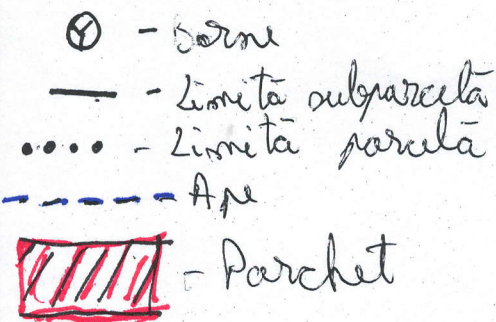 - Borne
- Limită subparcelă
- Limită parcelă
- Ape
- Parchet